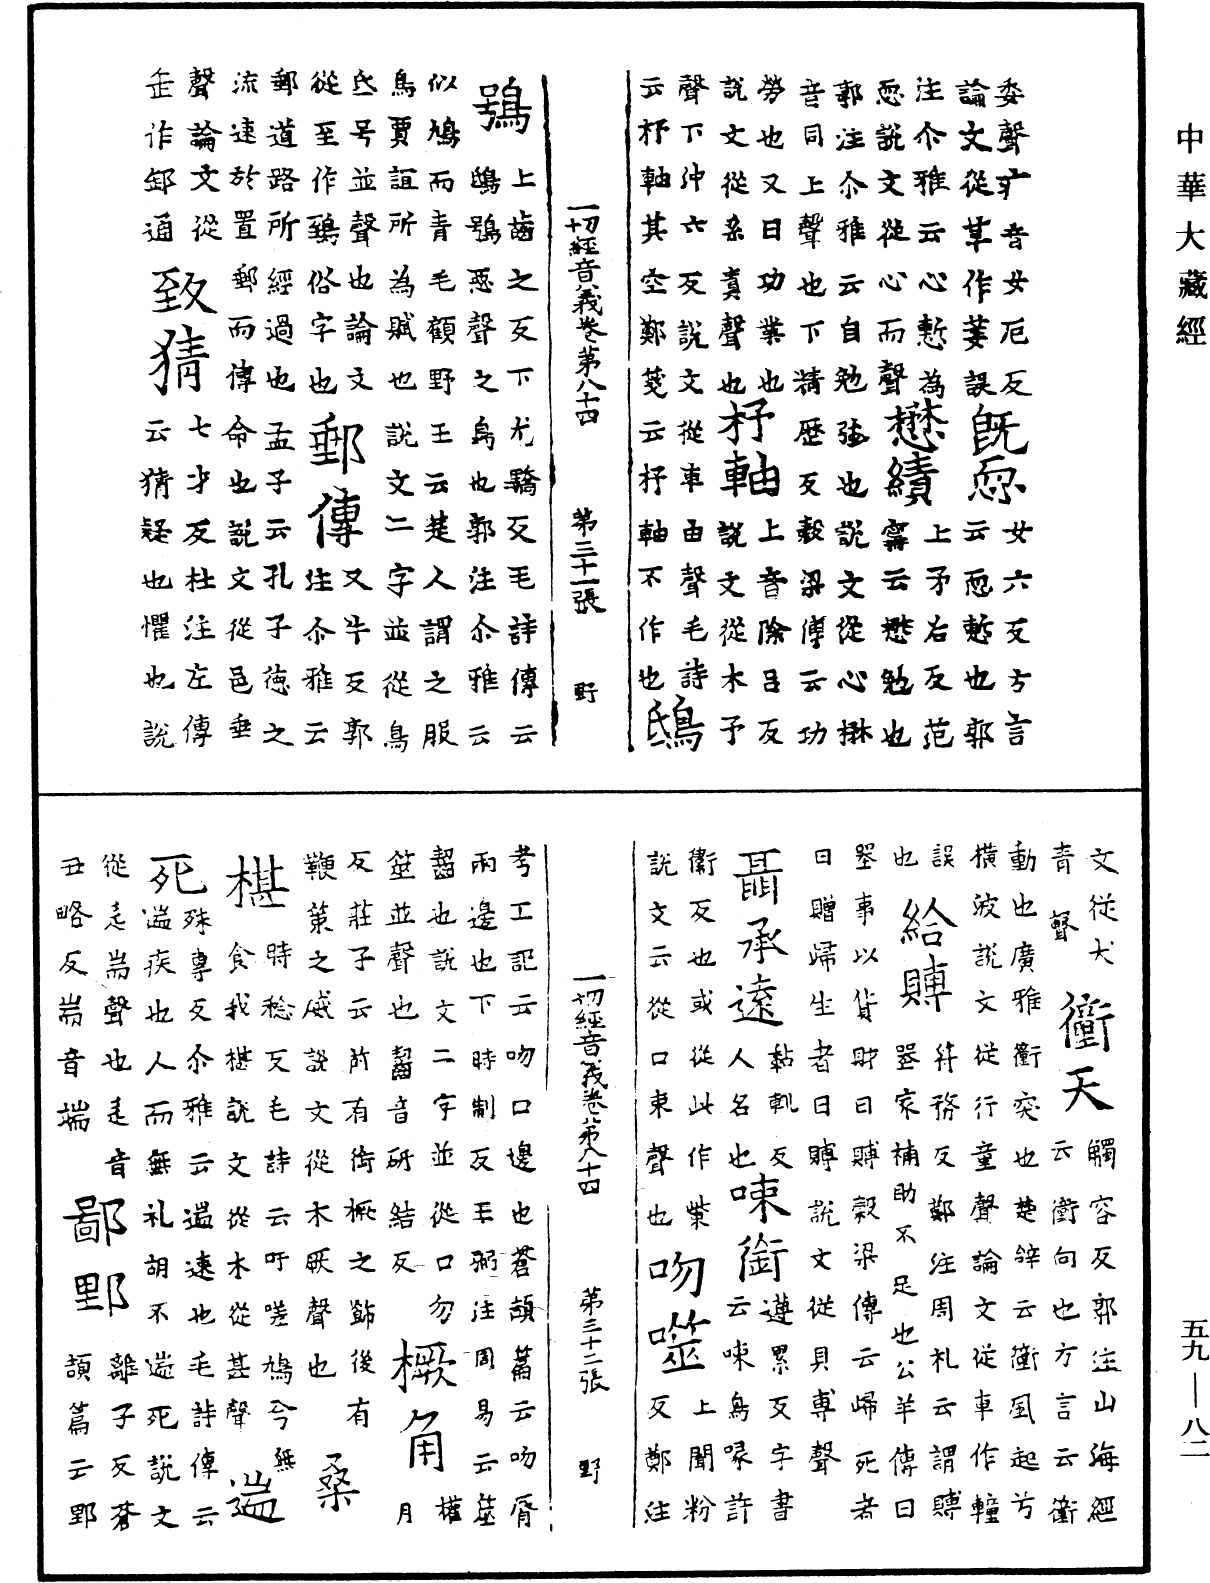 中華大藏經
委聲疒音女厄反
論文從草作萎誤
既恧
女六反方言
云恧慙也郭
注尒雅云心慙為
恧說文從心而聲
懋績
上矛右反范
甯云懋勉也
郭注尒雅云自勉強也說文從心楙
音同上聲也下精歷反穀梁傳云功
勞也又曰功業也
說文從糸責聲也
杼軸
上音除呂反
說文從木予
聲下沖六反說文從車由聲毛詩
云杼軸其空鄭箋云杼軸不作也
鴟
一切經音義卷第八十四
第三十一張
野
鴞
上齒之反下尤驕反毛詩傳云
鴟鴞惡聲之鳥也郭注尒雅云
似鳩而青毛顧野王云楚人謂之服
鳥賈誼所為賦也說文二字並從鳥
氐号並聲也論文
從至作鵄俗字也
郵傳
又牛反郭
注尒雅云
郵道路所經過也孟子云孔子德之
流速於置郵而傳命也說文從邑垂
聲論文從
𠂹作䣃通
致猜
七才反杜注左傳
云猜疑也懼也說
文從犬
青聲
衝天
觸容反郭注山海經
云衝向也方言云衝
動也廣雅衝突也楚辭云衝風起兮
橫波說文從行童聲論文從車作䡴
誤
也
給賻
符務反鄭注周礼云謂賻
喪家補助不足也公羊傳曰
喪事以貨財曰賻穀梁傳云歸死者
曰贈歸生者曰賻說文從貝尃聲
聶承遠
黏輒反
人名也
㖶銜
遵累反字書
云㖶鳥喙許
衞反也或從此作㭰
說文云從口朿聲也
吻噬
上聞粉
反鄭注
一切經音義卷第八十四
第三十二張
野
考工記云吻口邊也蒼頡篇云吻脣
兩邊也下時制反王弼注周易云筮
齧也說文二字並從口勿
筮並聲也齧音研結反
橛角
權
月
反莊子云前有銜橛之飾後有
鞭筞之威說文從木厥聲也
桑
椹
時稔反毛詩云吁嗟鳩兮無
食我椹說文從木從甚聲
遄
死
殊專反尒雅云遄速也毛詩傳云
遄疾也人而無礼胡不遄死說文
從辵耑聲也辵音
丑略反耑音端
鄙野
離子反蒼
頡篇云野
五九—八二